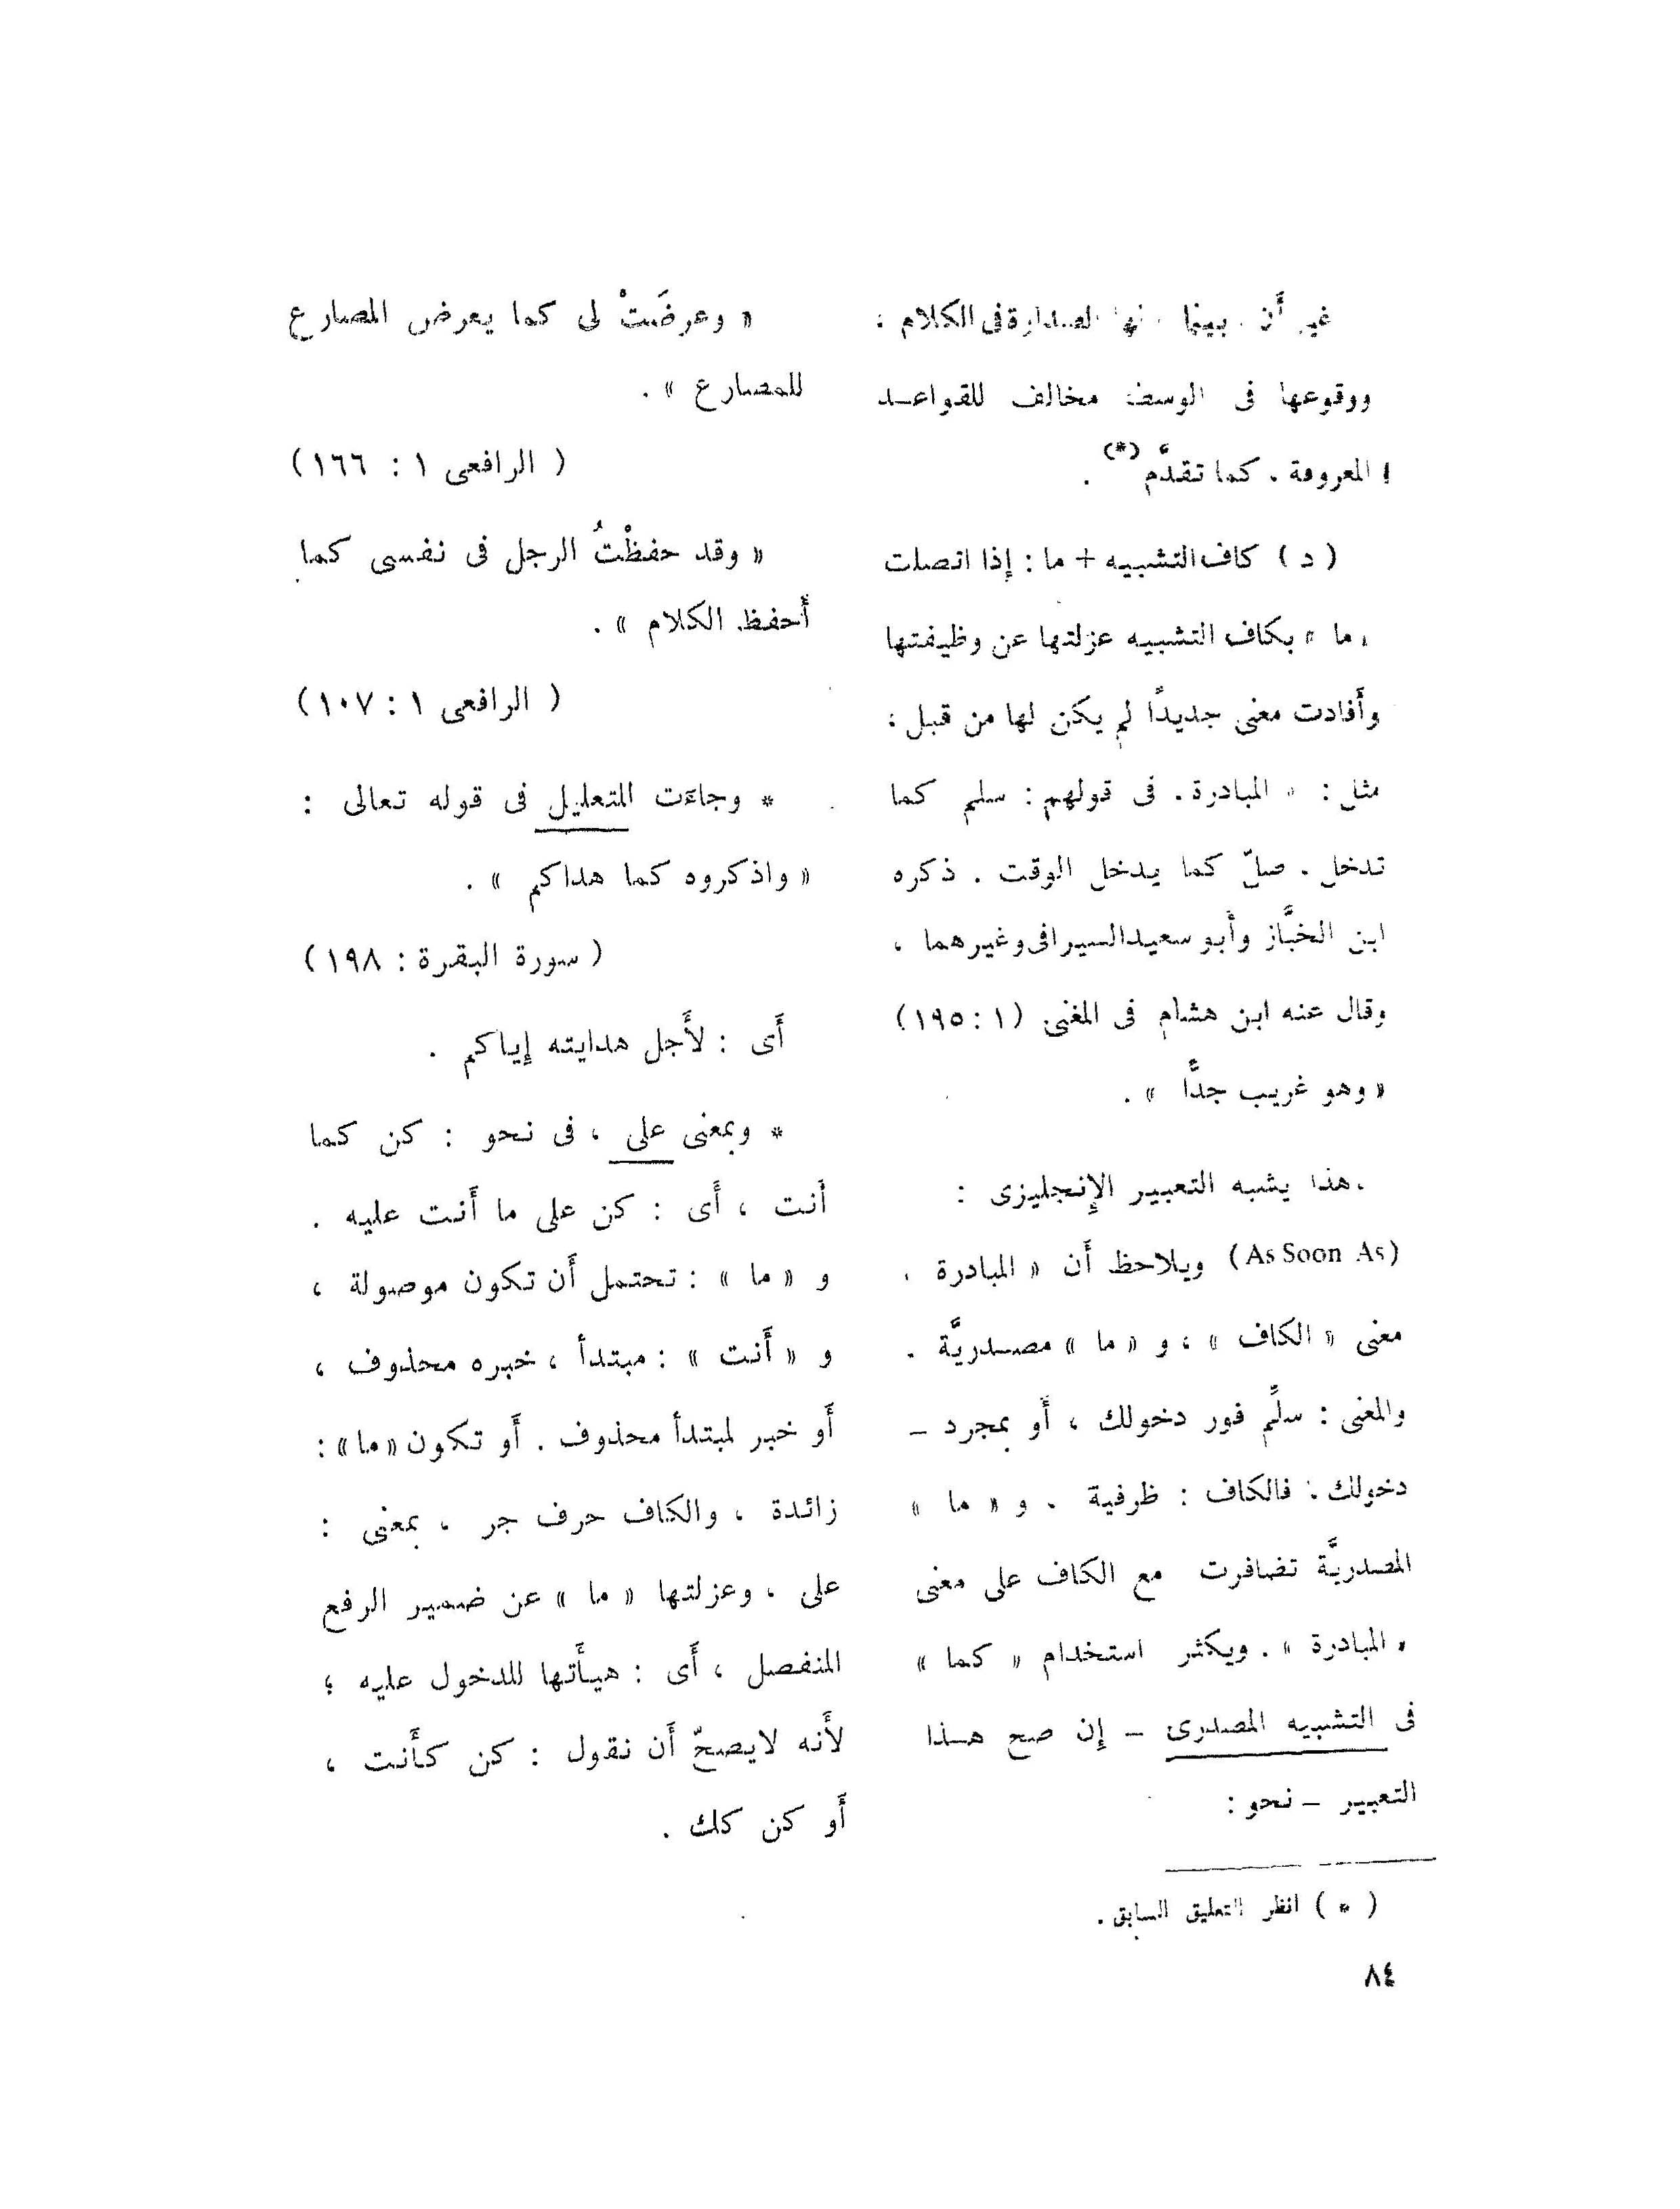 غير أن بينما لها الصدارة فى الكلام ؛
ووقوعها فى الوسط مخالف للقواعــد
المعروفة . كما تقدَّم (*) .
( د ) كاف التشبيه + ما : إذا اتصلت
« ما » بكاف التشبيه عزلتها عن وظيفتها
وأَفادت معنى جديدًا لم يكن لها من قبل ؛
مثل : « المبادرة . فى قولهم : سلم كما
تدخل . صلّ كما يدخل الوقت . ذكره
ابن الخبَّاز وأَبو سعيد السيرافى وغيرهما ،
وقال عنه ابن هشام فى المغنى (١ : ١٩٥)
« وهو غريب جدًّا » .
هذا يشبه التعبير الإِنجليزى :
(As Soon As) ويلاحظ أَن « المبادرة »
معنى « الكاف » ، و « ما » مصــدريَّة .
والمعنى : سلِّم فور دخولك ، أَو بمجرد –
دخولك . فالكاف : ظرفية . و « ما »
المصدريَّة تضافرت مع الكاف على معنى
« المبادرة » . ويكثر استخدام « كما »
فى التشبيه المصدرى – إِن صح هــذا
التعبير – نحو :
( * ) انظر التعليق السابق .
٨٤
« وعرضَتْ لى كما يعرض المصارع
للمصارع » .
( الرافعى ١ : ١٦٦)
« وقد حفظْتُ الرجل فى نفسى كما
أَحفظ الكلام » .
( الرافعى ١ : ١٠٧)
* وجاءَت للتعليل فى قوله تعالى :
« واذكروه كما هداكم » .
( سورة البقرة : ١٩٨)
أَى : لأَجل هدايته إِياكم .
* وبمعنى على ، فى نحو : كن كما
أَنت ، أَى : كن على ما أَنت عليه .
و « ما » : تحتمل أَن تكون موصولة ،
و « أَنت » : مبتدأ ، خبره محذوف ،
أَو خبر لمبتدأ محذوف . أَو تكون «ما» :
زائدة ، والكاف حرف جر ، بمعنى :
على ، وعزلتها « ما » عن ضمير الرفع
المنفصل ، أَى : هيأَتها للدخول عليه ؛
لأَنه لايصحّ أَن نقول : كن كأَنت ،
أَو كن كك .